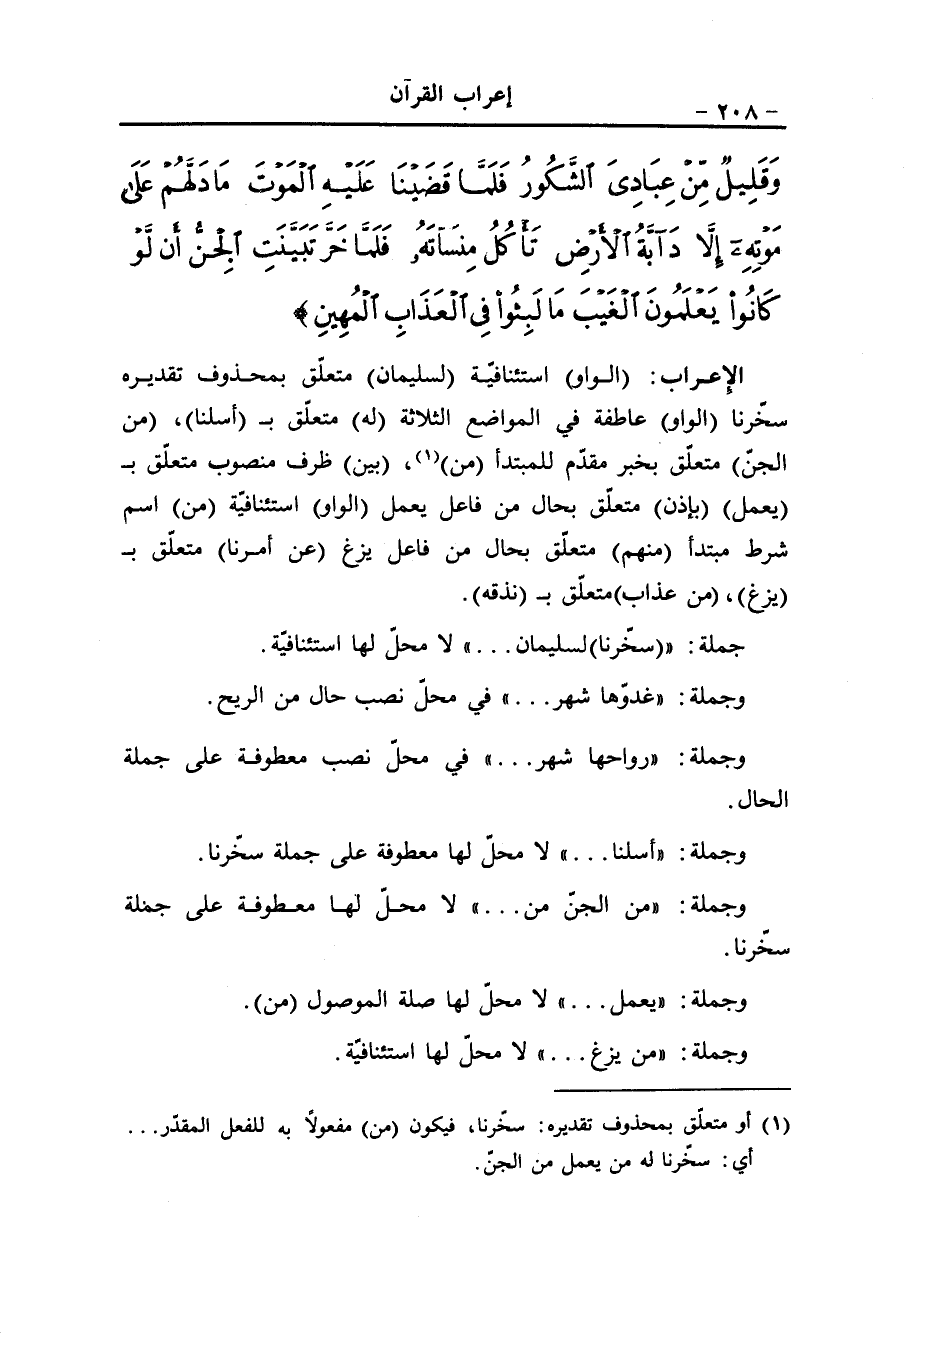 إعراب القرآن
- ٢٠٨ -
وَقَلِيلٌ مِّنْ عِبَادِىَ ٱلشَّكُورُ فَلَمَّا قَضَيْنَا عَلَيْهِ ٱلْمَوْتَ مَا دَلَّهُمْ عَلَىٰ
مَوْتِهِۦٓ إِلَّا دَآبَّةُ ٱلْأَرْضِ تَأْكُلُ مِنسَأَتَهُۥ فَلَمَّا خَرَّ تَبَيَّنَتِ ٱلْجِنُّ أَن لَّوْ
كَانُوا۟ يَعْلَمُونَ ٱلْغَيْبَ مَا لَبِثُوا۟ فِى ٱلْعَذَابِ ٱلْمُهِينِ ﴾
الإعراب: (الواو) استئنافيّة (لسليمان) متعلّق بمحذوف تقديره
سخّرنا (الواو) عاطفة في المواضع الثلاثة (له) متعلّق بـ (أسلنا)، (من
الجنّ) متعلّق بخبر مقدّم للمبتدأ (من)(١)، (بين) ظرف منصوب متعلّق بـ
(يعمل) (بإذن) متعلّق بحال من فاعل يعمل (الواو) استئنافيّة (من) اسم
شرط مبتدأ (منهم) متعلّق بحال من فاعل يزغ (عن أمرنا) متعلّق بـ
(يزغ)، (من عذاب)متعلّق بـ (نذقه).
جملة: «(سخّرنا)لسليمان...» لا محلّ لها استئنافيّة.
وجملة: «غدوّها شهر...» في محلّ نصب حال من الريح.
وجملة: «رواحها شهر...» في محلّ نصب معطوفة على جملة
الحال.
وجملة: «أسلنا...» لا محلّ لها معطوفة على جملة سخّرنا.
وجملة: «من الجنّ من...» لا محلّ لها معطوفة على جملة
سخّرنا.
وجملة: «يعمل...» لا محلّ لها صلة الموصول (من).
وجملة: «من يزغ...» لا محلّ لها استئنافيّة.
(١) أو متعلّق بمحذوف تقديره: سخّرنا، فيكون (من) مفعولاً به للفعل المقدّر...
أي: سخّرنا له من يعمل من الجنّ.